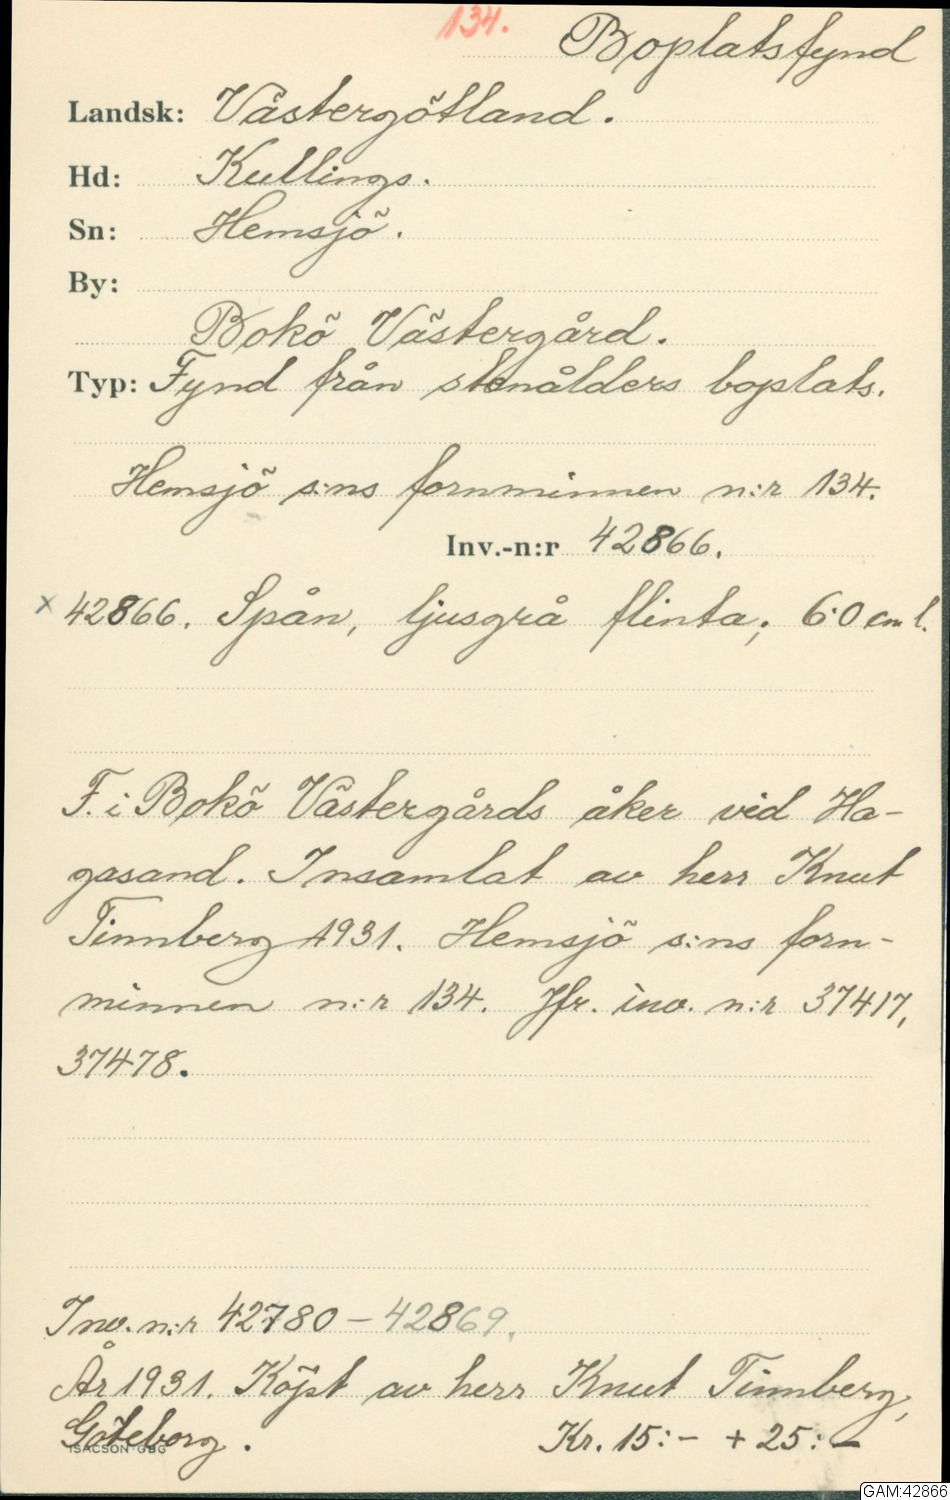 134.
Boplatsfynd
Landsk: Västergötland.
Hd: Kullings.
Sn: Hemsjö.
By:
Bokö Västergård.
Typ: Fynd från stenålders boplats.
Hemsjö s:ns fornminnen n:r 134.
Inv.-n:r 42866.
x 42866. Spån, ljusgrå flinta; 6.0 cm l.
F. i Bokö Västergårds åker vid Ha-
gasand. Insamlat av herr Knut
Tinnberg 1931. Hemsjö s:ns forn-
minnen n:r 134. Jfr. inv. n:r 37417,
37478.
Inv. n:r 42780 – 42869.
År 1931. Köpt av herr Knut Tinnberg,
Göteborg.
ISACSON GBG
Kr. 15:- + 25:-
GAM:42866